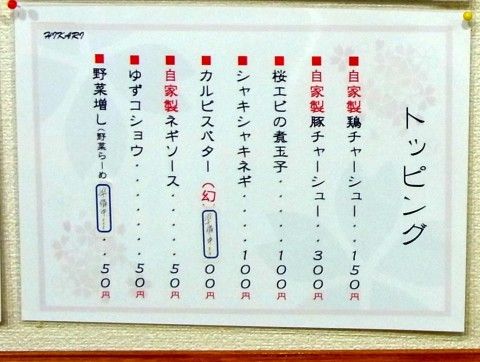 HIKARI
トッピング
■自家製鶏チャーシュー・・150円
■自家製豚チャーシュー・・300円
■桜エビの煮玉子・・・・・100円
■シャキシャキネギ・・・・・100円
■カルピスバター(幻) 00円
■自家製ネギソース・・・・・・50円
■ゆずコショウ・・・・・・・50円
■野菜増し(野菜らーめ ・・50円